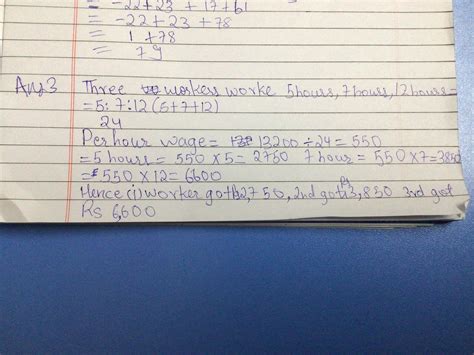 = -22+23 + 17+61
= -22+23 +78
= 1 +78
= 79
Ans3 Three workers worke 5hours, 7hours, 12hours=
=5:7:12 (5+7+12)
24
Per hour wage = 13200 ÷ 24 = 550
=5 hours = 550 ×5= 2750 7 hour = 550 ×7=3850
= 550 ×12= 6600
Hence (i) worker got 2,750, 2nd got Rs 3,850 3rd got
Rs 6,600